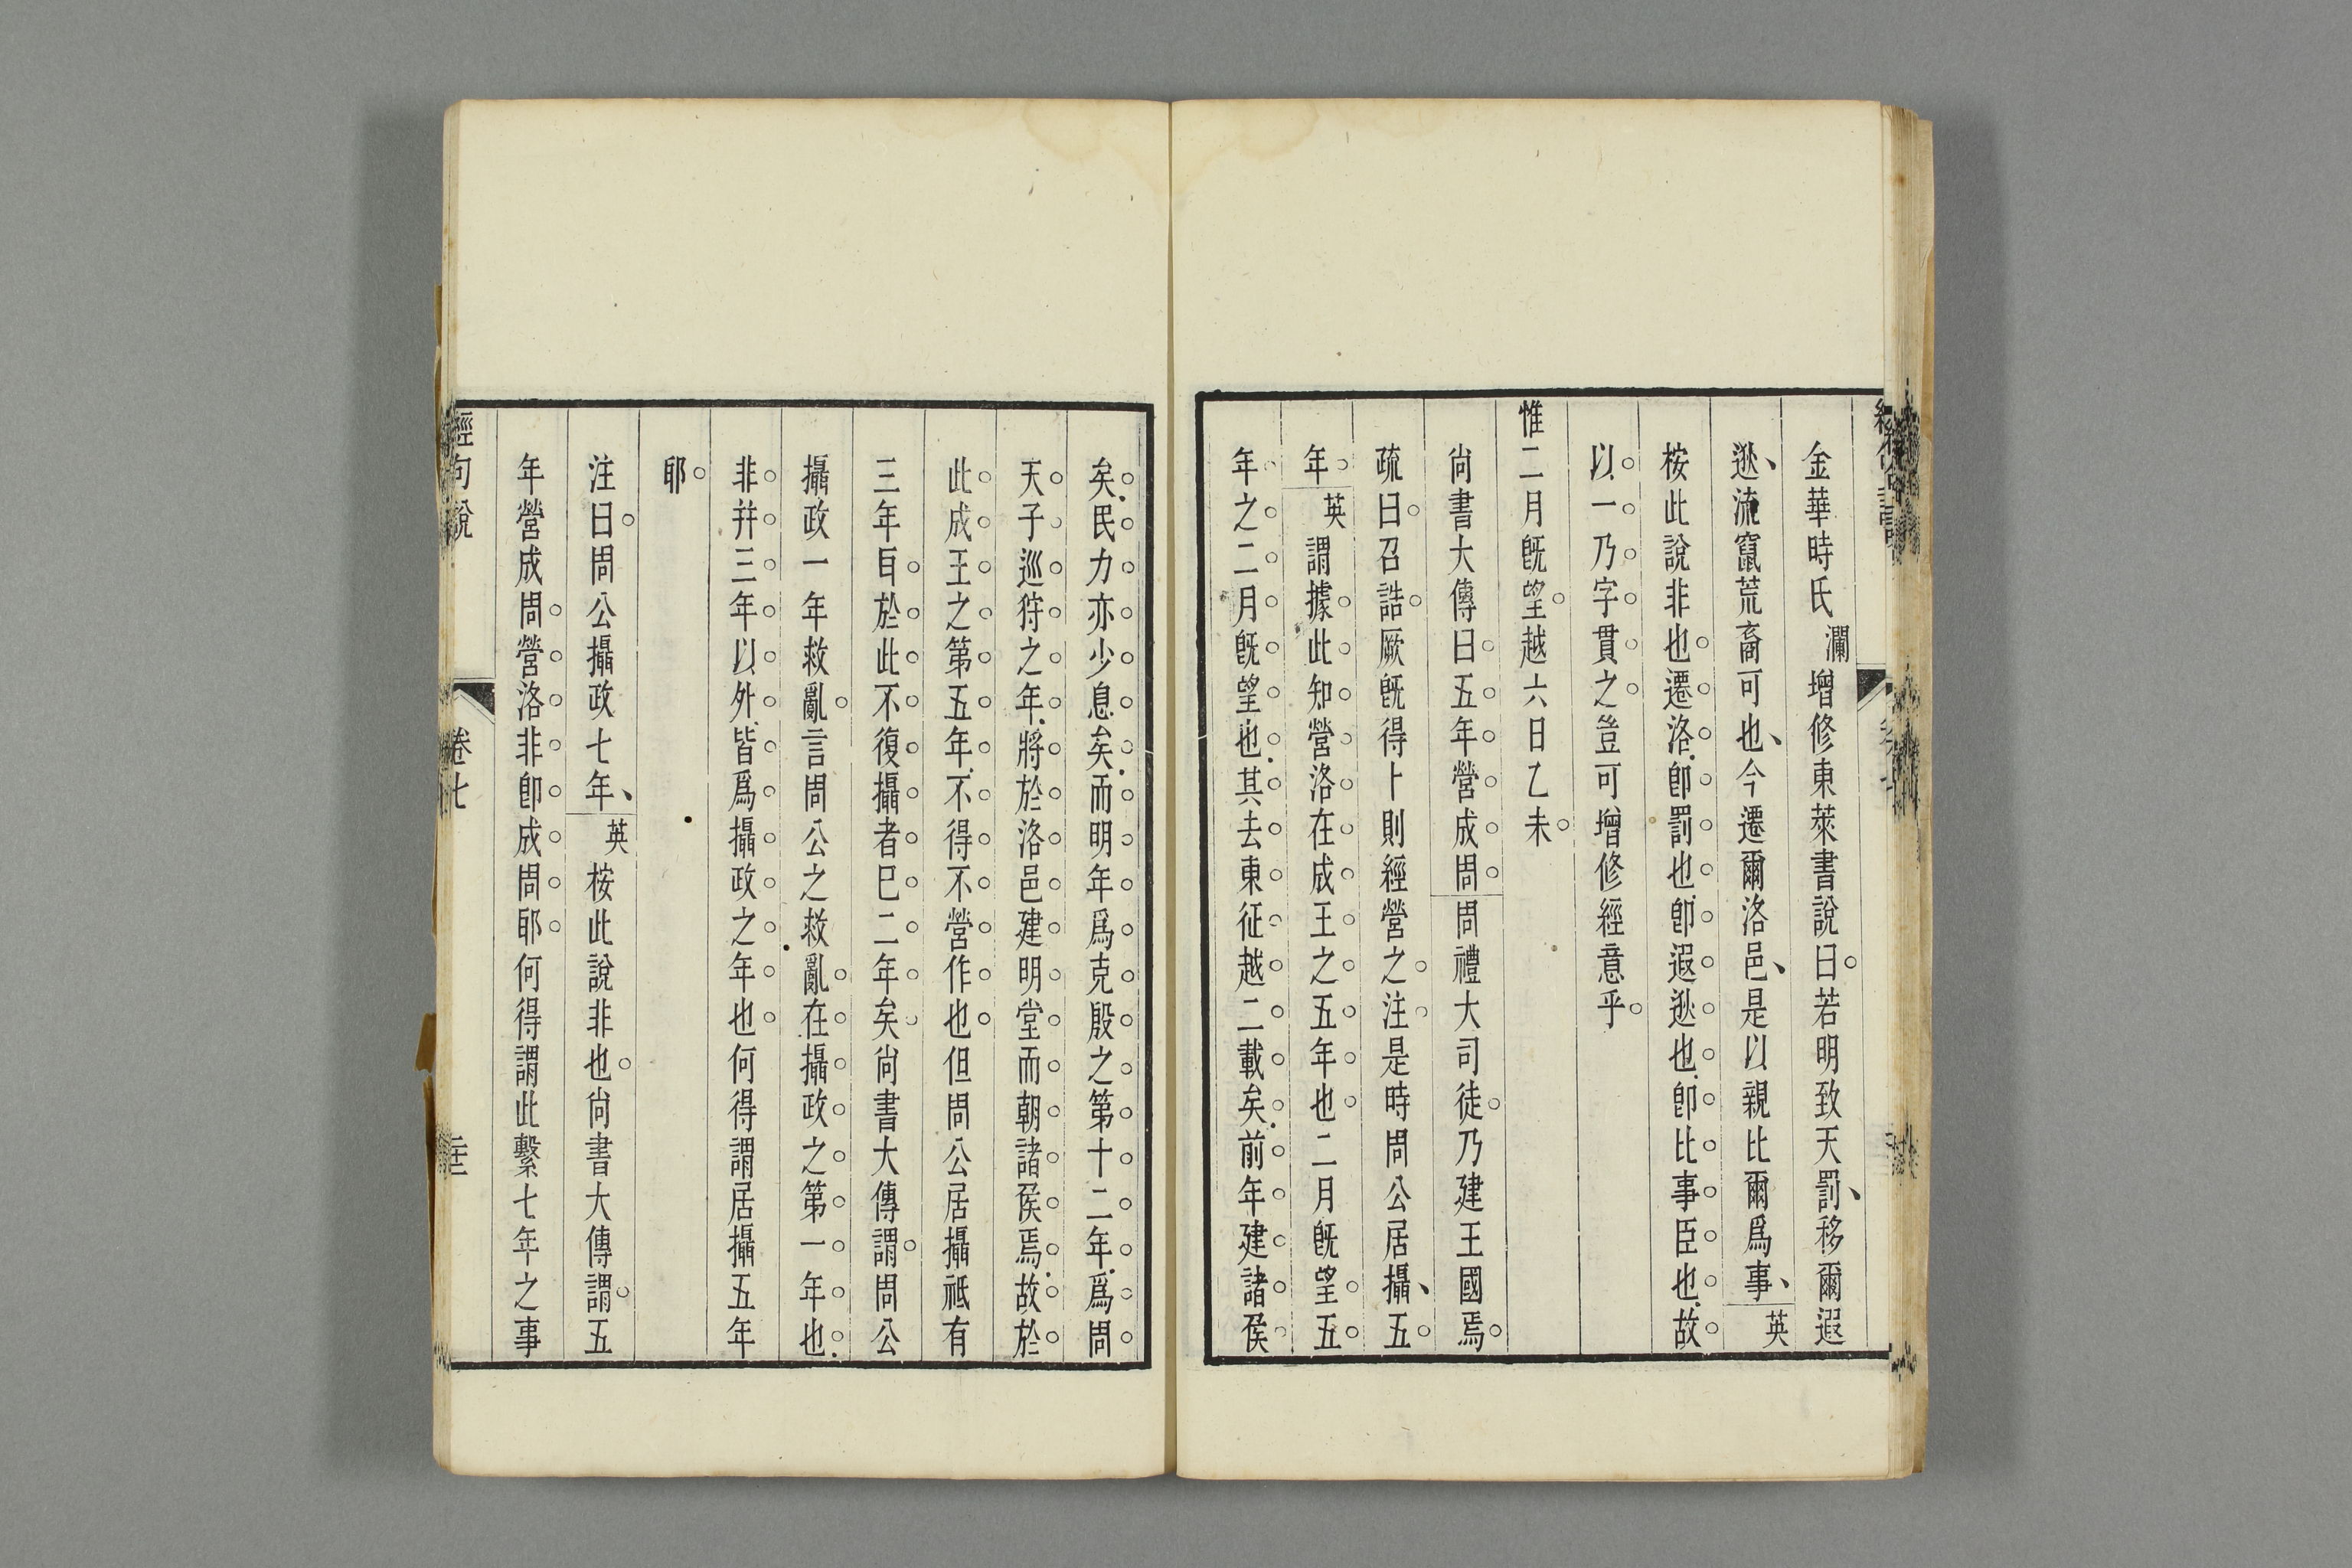 金華時氏瀾增修東萊書說曰若明致天罰移爾遐
逖流竄荒裔可也今遷爾洛邑是以親比爾爲事英
桉此說非也遷洛卽罰也卽遐逖也卽比事臣也故
以一乃字貫之豈可增修經意乎
惟二月旣望越六日乙未
尙書大傳曰五年營成周周禮大司徒乃建王國焉
疏曰召誥厥旣得卜則經營之注是時周公居攝五
年英謂據此知營洛在成王之五年也二月旣望五
年之二月旣望也其去東征越二載矣前年建諸侯
矣民力亦少息矣而明年爲克殷之第十二年爲周
天子巡狩之年將於洛邑建明堂而朝諸侯焉故於
此成王之第五年不得不營作也但周公居攝祗有
三年㠯於此不復攝者巳二年矣尙書大傳謂周公
攝政一年救亂言周公之救亂在攝政之第一年也
非幷三年以外皆爲攝政之年也何得謂居攝五年
耶
注曰周公攝政七年英桉此說非也尙書大傳謂五
年營成周營洛非卽成周耶何得謂此繫七年之事
經句說
卷七